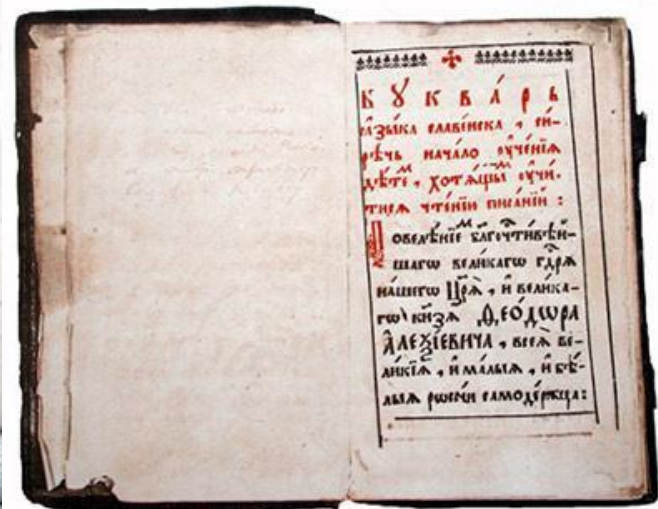 БꙊКВА́РЬ
ꙗ҆зы́ка славе́нска, си-
рѣ́чь нача́ло ᲂу҆че́нїѧ
дѣ́теⷨ, хотѧ́щыⷨ ᲂу҆чи́-
тисѧ чте́нїю писа́нїй :
Повелѣ́нїеⷨ бл҃гочⷭ҇тивѣ́й-
шагѡ вели́кагѡ гдⷭ҇рѧ
на́шегѡ Цр҃ѧ̀, и҆ вели́ка-
гѡ кн҃зѧ Ѳео́дѡра
А҆леѯі́евича, всеѧ̀ ве-
ли́кїѧ, и҆ ма́лыѧ, и҆ бѣ́-
лыѧ рѡссі́и самоде́ржца :